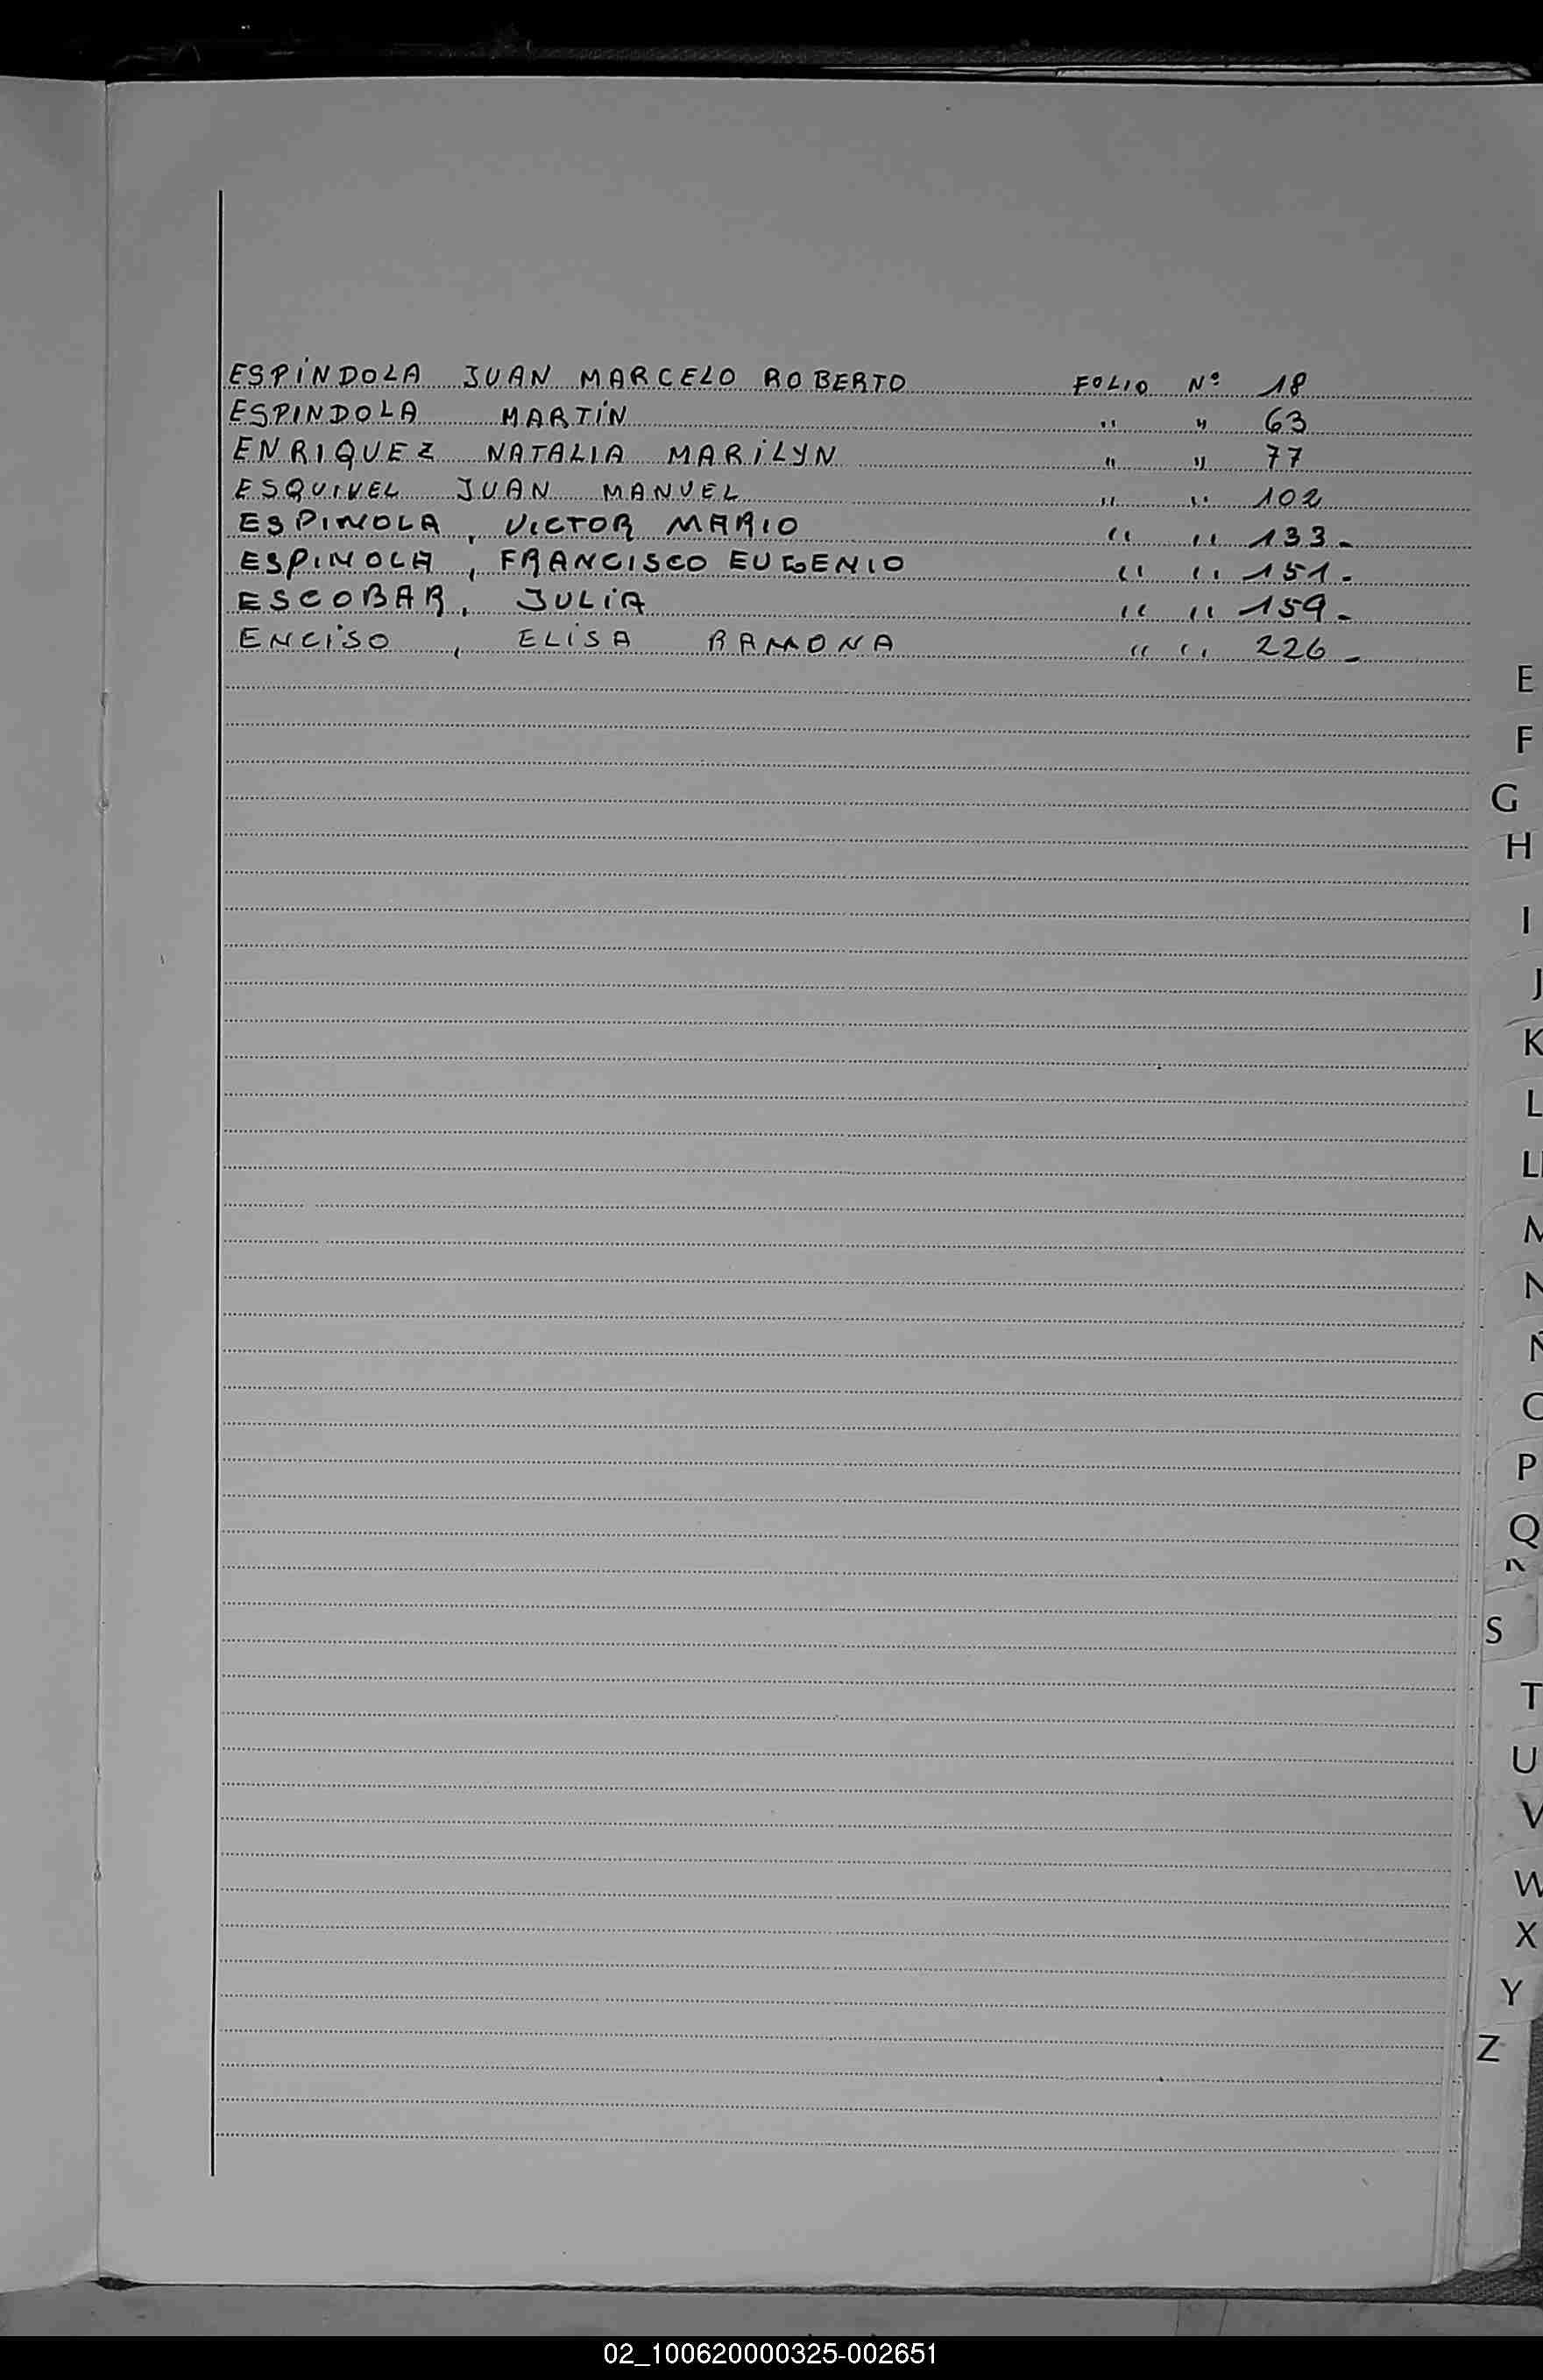 ESPÍNDOLA JUAN MARCELO ROBERTO FOLIO Nº 18
ESPINDOLA MARTÍN " " 63
ENRIQUEZ NATALIA MARILYN " " 77
ESQUIVEL JUAN MANUEL " " 102
ESPINOLA, VICTOR MARIO " " 133-
ESPINOLA, FRANCISCO EUGENIO " " 151-
ESCOBAR, JULIA " " 159-
ENCISO, ELISA RAMONA " " 226-
E
F
G
H
I
J
K
L
Ll
M
N
Ñ
O
P
Q
R
S
T
U
V
W
X
Y
Z
02_100620000325-002651